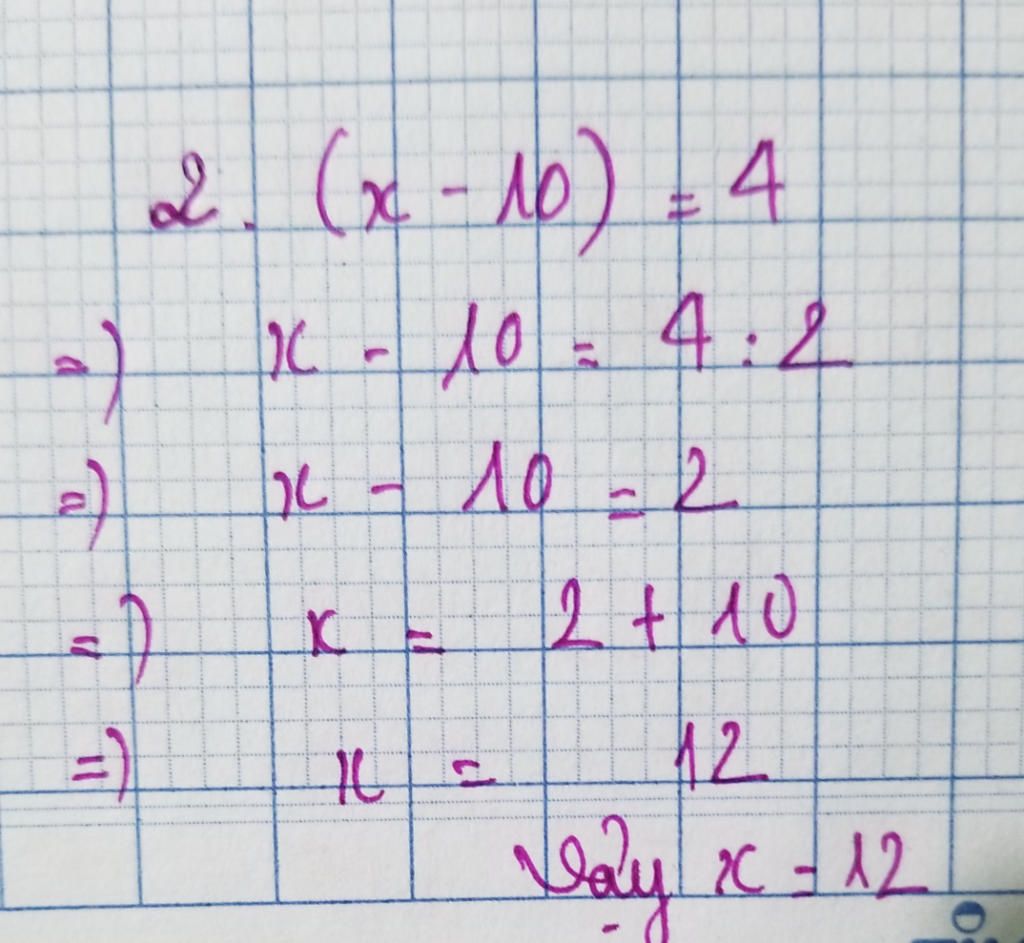 2. (x - 10) = 4
=) x - 10 = 4 : 2
=) x - 10 = 2
=) x = 2 + 10
=) x = 12
Vậy x = 12